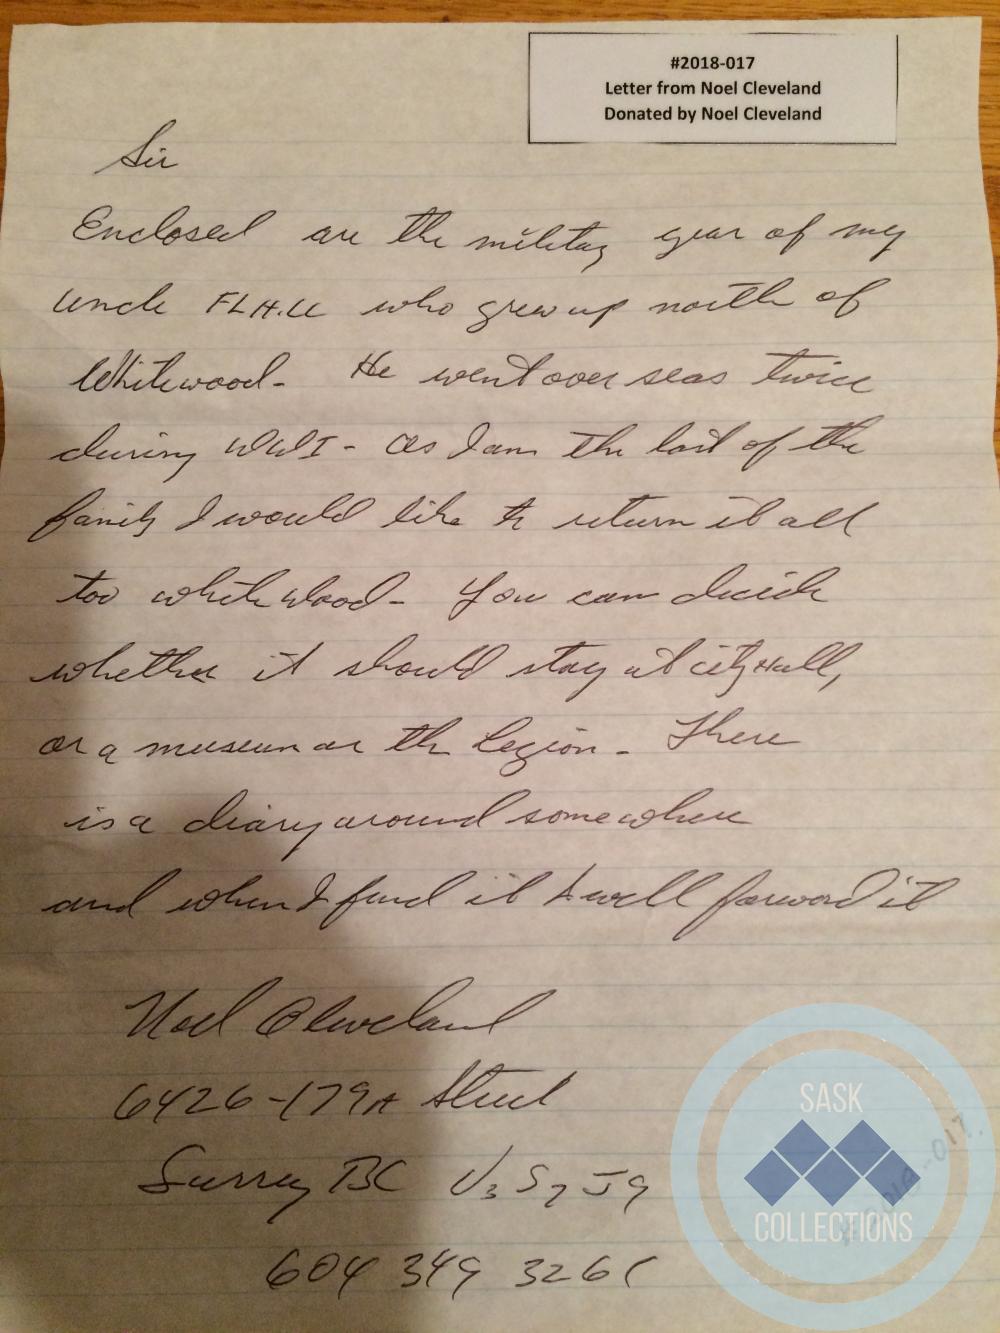 #2018-017
Letter from Noel Cleveland
Donated by Noel Cleveland
Sir
Enclosed are the military gear of my
uncle who grew up north of
Whitewood - He went over seas twice
during WWI - As I am the last of the
family I would like to return it all
too whitewood - You can decide
whether it should stay at city Hall,
or a museum or the legion - There
is a diary around somewhere
and when I find it I will forward it
Noel Cleveland
6426-179A Street
Surrey BC V3S7J9
604 349 3261
SASK
COLLECTIONS
#2018-017.